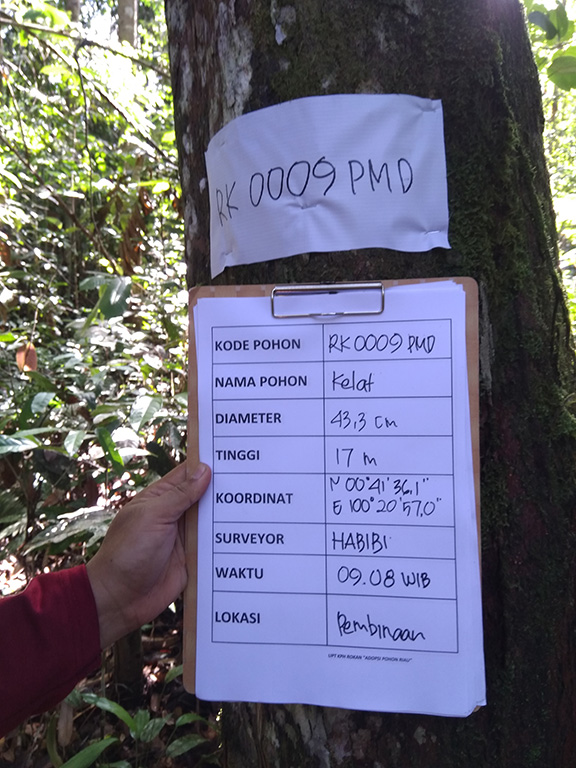 RK 0009 PMD
KODE POHON RK 0009 PMD
NAMA POHON Kelat
DIAMETER 43,3 cm
TINGGI 17 m
KOORDINAT N 00°41'36,1"
E 100°20'57,0"
SURVEYOR HABIBI
WAKTU 09.08 WIB
LOKASI Pembinaan
UPT KPH ROKAN "ADOPSI POHON RIAU"